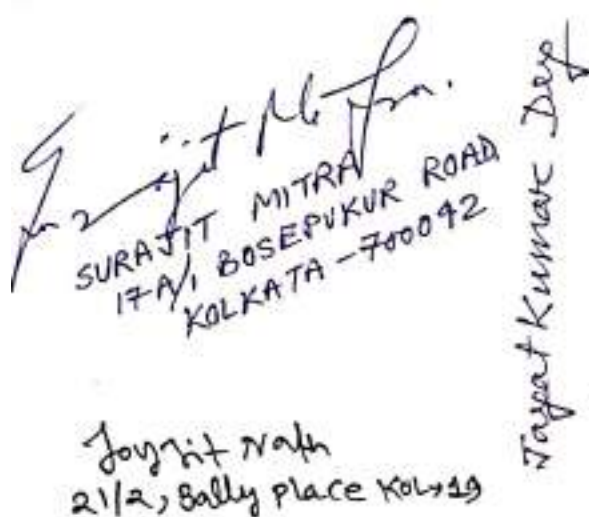 Surajit Mitra.
SURAJIT MITRA
17A/1 BOSEPUKUR ROAD
KOLKATA - 700042
Jayat Kumar Dey
Joyjit Nath
21/2, Bally place KOL-19